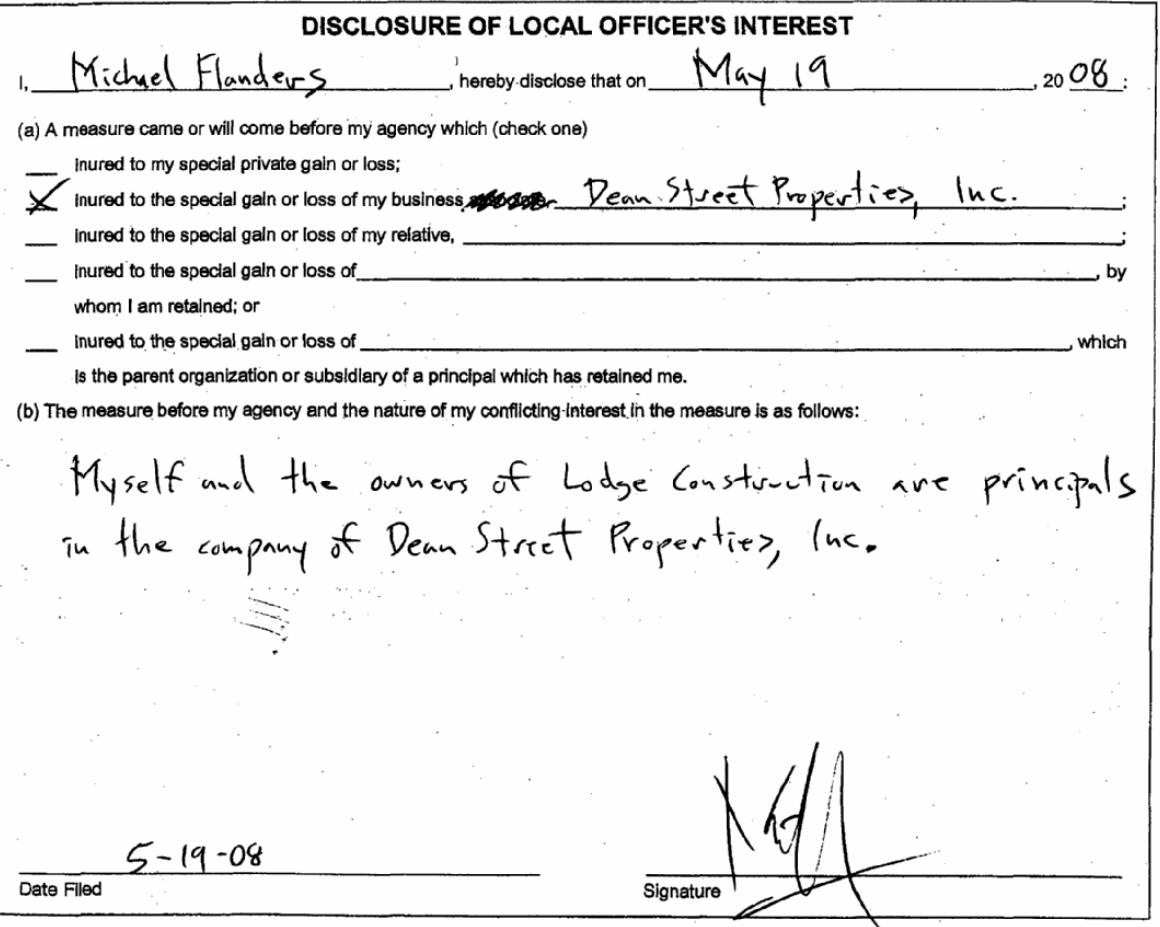 DISCLOSURE OF LOCAL OFFICER'S INTEREST
I, Michael Flanders, hereby disclose that on May 19, 20 08 :
(a) A measure came or will come before my agency which (check one)
___ inured to my special private gain or loss;
X inured to the special gain or loss of my business Dean Street Properties, Inc. ;
___ inured to the special gain or loss of my relative, ___ ;
___ inured to the special gain or loss of ___ , by
whom I am retained; or
___ inured to the special gain or loss of ___ , which
is the parent organization or subsidiary of a principal which has retained me.
(b) The measure before my agency and the nature of my conflicting interest in the measure is as follows:
Myself and the owners of Lodge Construction are principals
in the company of Dean Street Properties, Inc.
5-19-08
Date Filed
Signature